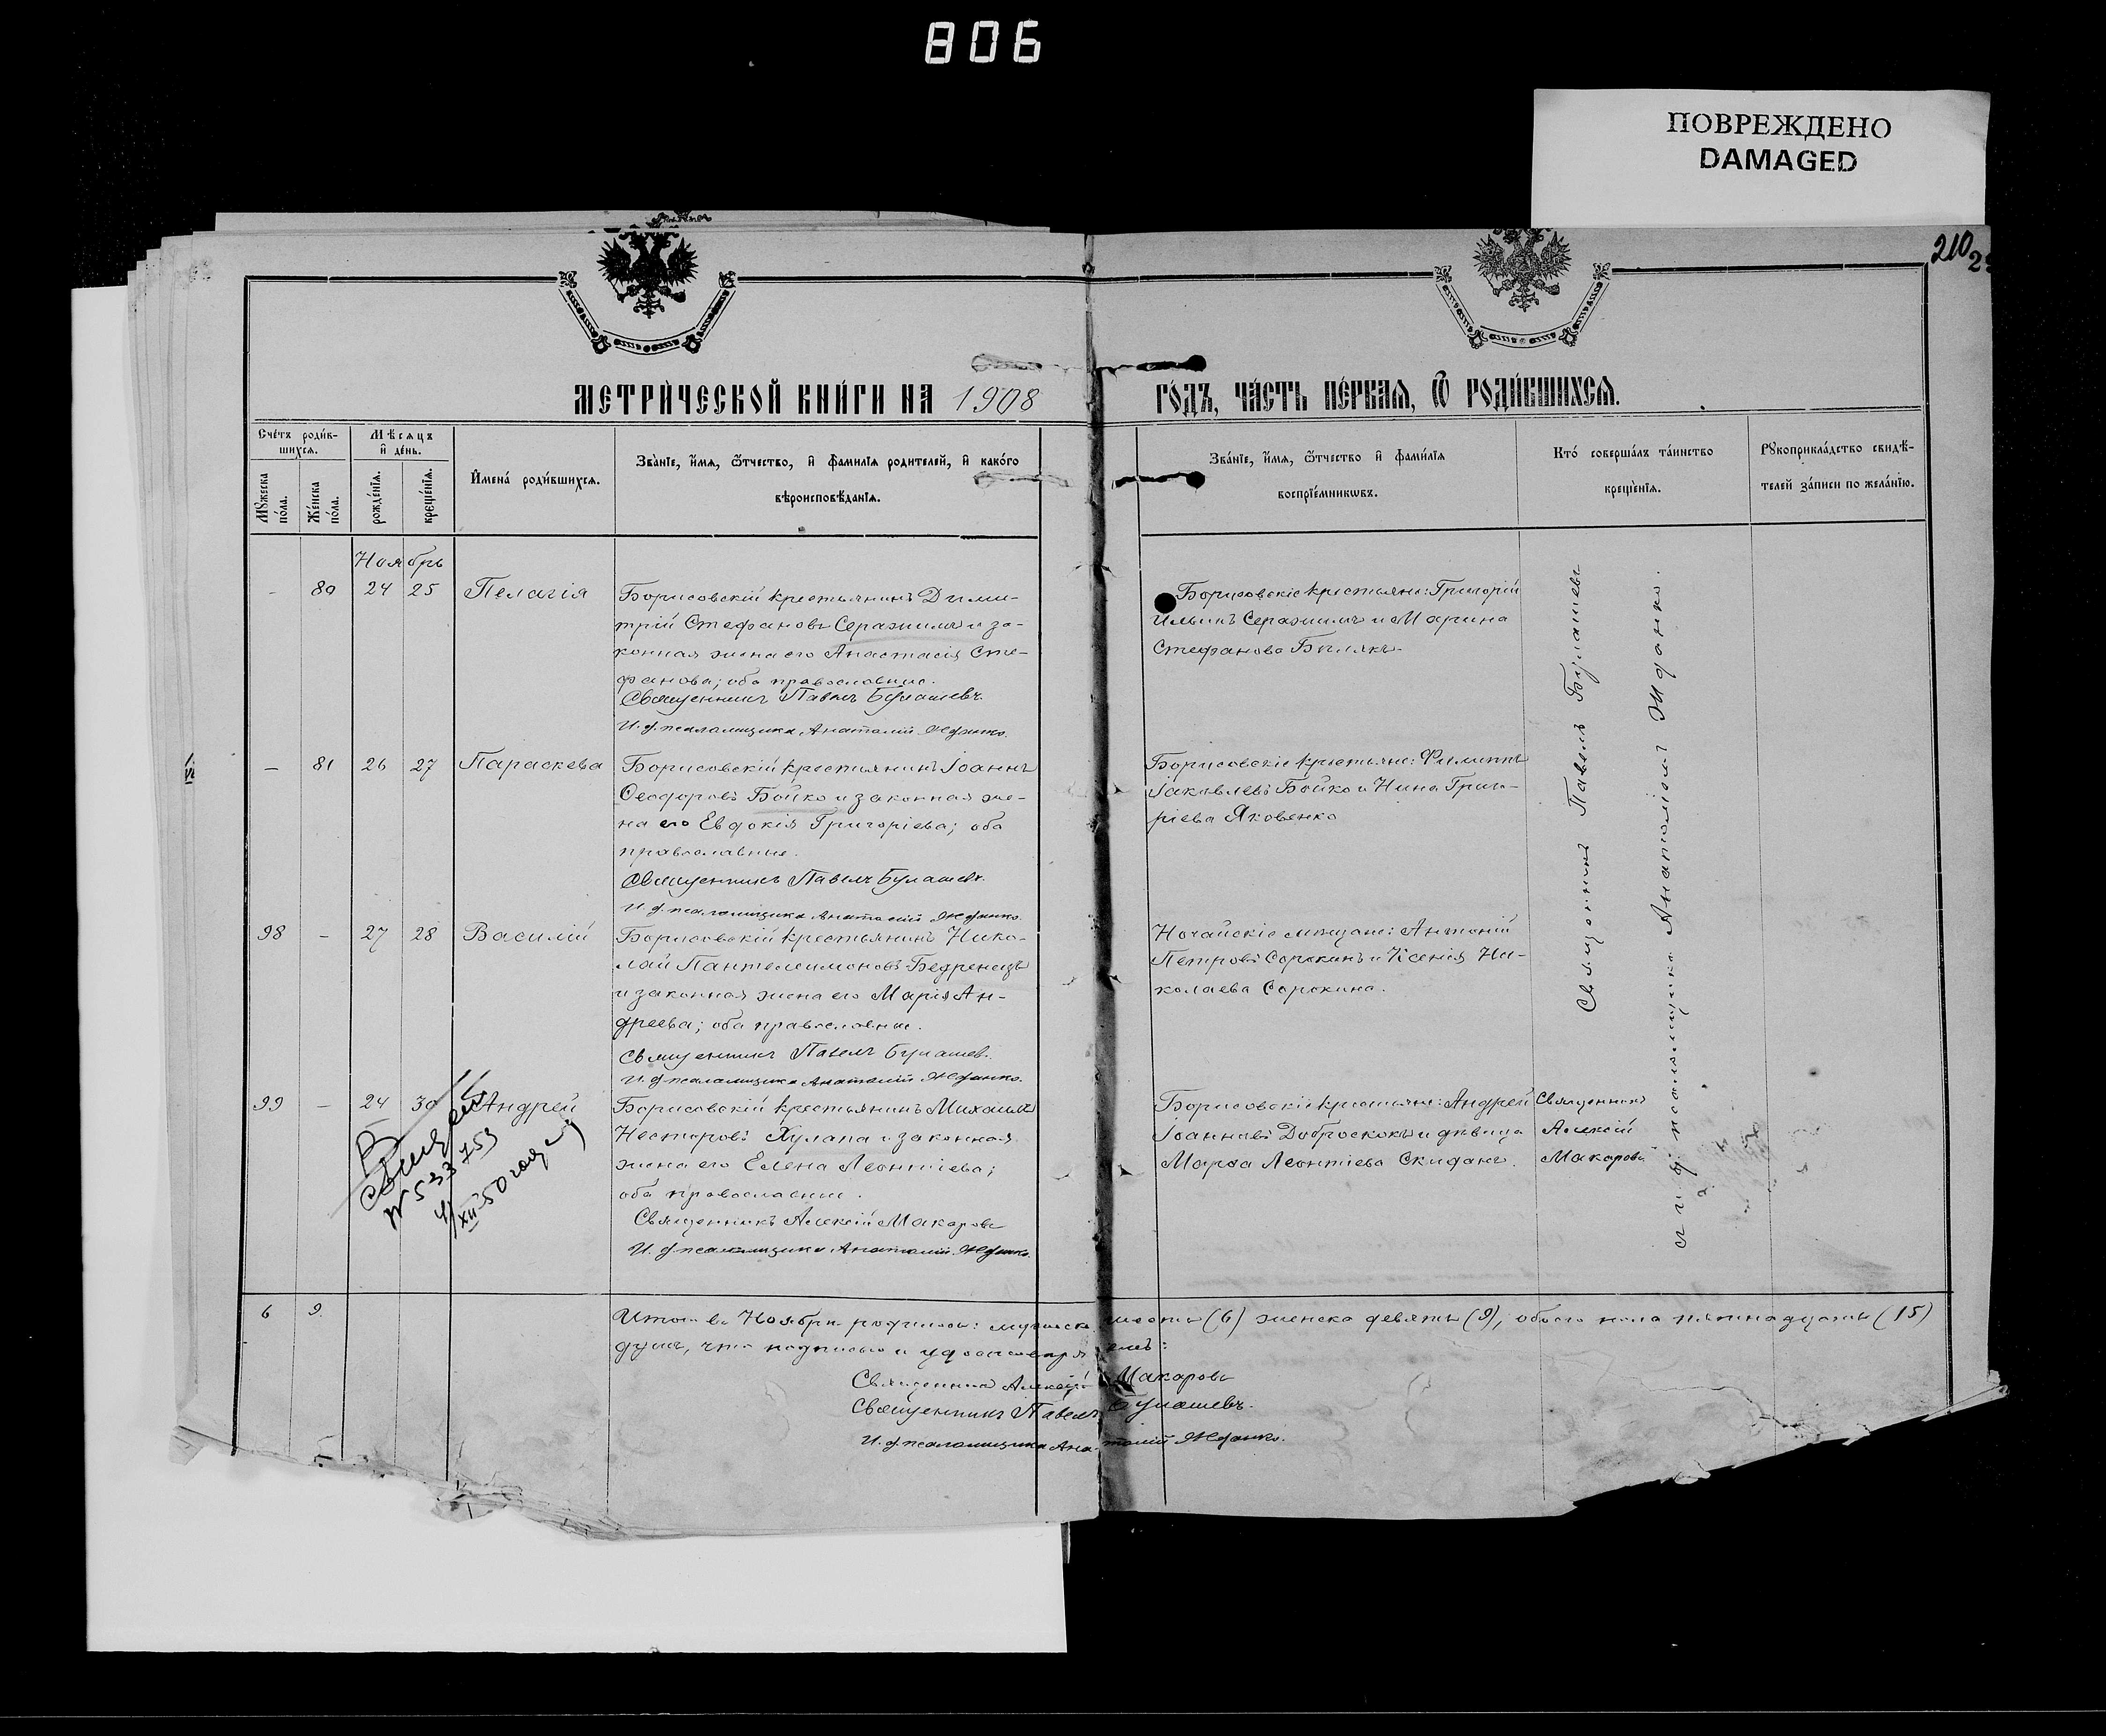 806
ПОВРЕЖДЕНО
DAMAGED
210
МЕТРИ́ЧЕСКОЙ КНИ́ГИ НА 1908
ГО́ДЪ, ЧА́СТЬ ПЕ́РВАЯ, Ѿ РОДИ́ВШИХСЯ.
Сче́тъ роди́в-
шихся.
Мѣ́сяцъ
и҆ де́нь.
Мꙋ́жеска
по́ла.
Же́нска
по́ла.
рожде́нїя.
креще́нїя.
И҆мена́ роди́вшихся.
Зва́нїе, и҆́мя, ѻ҆́тчество, и҆ фами́лїя роди́телей, и҆ како́гѡ
вѣроисповѣ́данїя.
Зва́нїе, и҆́мя, ѻ҆́тчество и҆ фами́лїя
воспрїе́мникѡвъ.
Кто̀ соверша́лъ та́инство
креще́нїя.
Рꙋкоприкла́дство свидѣ́-
телей за́писи по жела́нїю.
Ноябрь
- 80 24 25 Пелагія
Борисовскій крестьянинъ Дими-
трій Стефановъ Сержимъ и за-
конная жена его Анастасія Сте-
фанова; оба православные.
Священникъ Павелъ Булашевъ.
И. д. псаломщика Анатолій Жданко.
Борисовскіе крестьяне: Григорій
Ильинъ Сержимъ и Марина
Стефанова Билякъ.
Священникъ Павелъ Булашевъ
и и. д. псаломщика Анатолій Жданко.
— 81 26 27 Параскева
Борисовскій крестьянинъ Іоаннъ
Ѳеодоровъ Бойко и законная же-
на его Евдокія Григоріева; оба
православные.
Священникъ Павелъ Булашевъ.
И. д. псаломщика Анатолій Жданко.
Борисовскіе крестьяне: Филиппъ
Іаковлевъ Бойко и Нина Григо-
ріева Яковенко
98 - 27 28 Василій
Борисовскій крестьянинъ Нико-
лай Пантелеимоновъ Бедренецъ
и законная жена его Марія Ан-
дреева; оба православные.
Священникъ Павелъ Булашевъ.
И. д. псаломщика Анатолій Жданко.
Ногайскіе мѣщане: Антоній
Петровъ Сорокинъ и Ксенія Ни-
колаева Сорокина.
99 — 24 30 Андрей
№ 533753
50 года
Борисовскій крестьянинъ Михаилъ
Несторовъ Хулапа и законная
жена его Елена Леонтіева;
оба православные.
Священникъ Алексій Макаровъ
И. д. псаломщика Анатолій Жданко.
Борисовскіе крестьяне: Андрей
Іоанновъ Доброскокъ и дѣвица
Марѳа Леонтіева Скиданъ.
Священникъ
Алексій
Макаровъ
6 9
Итого въ Ноябрѣ родилось: мужеска шесть (6) женска девять (9), обоего пола пятнадцать (15)
душъ, что подписью и удостовѣряемъ:
Священникъ Алексій Макаровъ
Священникъ Павелъ Булашевъ.
И. д. псаломщика Анатолій Жданко.